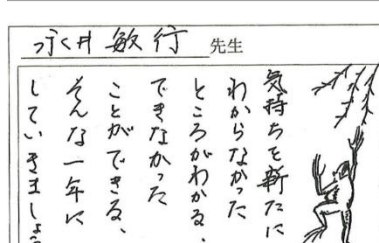 永井敏行先生
気持ちを新たに
わからなかった
ところがわかる、
できなかった
ことができる、
そんな一年に
していきましょう